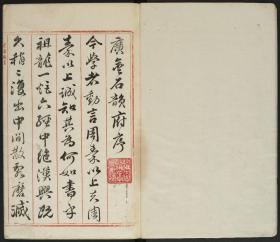 廣金石韻府序
今學者動言周秦以上夫周
秦以上誠知其為何如書乎
祖龍一炬六經中絶漢興既
久稍稍復出中間散軼磨滅